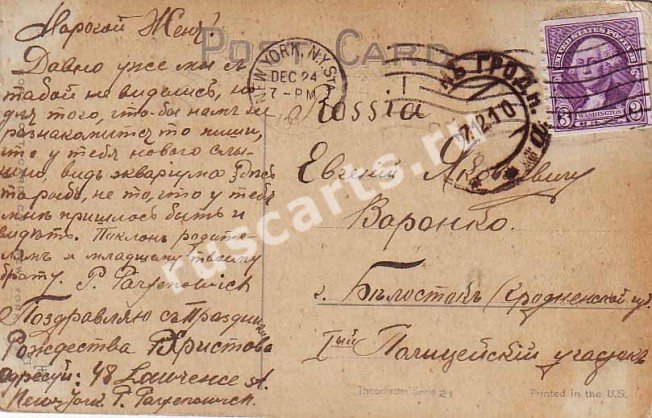 Дорогой Женя!
POST CARD
Давно уже мы с
табой не видались, но
для того, что-бы нам не
разнакомится то пиши,
что у тебя новаго слы-
шно, видь экваріума здесь
не то, что у тебя
мне пришлось быть и
видѣть. Паклонъ родите-
лямъ и младшему твоему
брату. P. Paryenowich
Поздравляю съ Праздни
Рождества Христова
адресуй: 48 Lawrence st.
New-York P. Paryenowich
NEW YORK, N.Y. STA.
DEC 24
7-PM
UNITED STATES POSTAGE
3 WASHINGTON 3
ГРОДН.
.12.10
Russia
Евгенію Яковлевичу
Варонко.
г. Бѣлостокъ (Гродненской губ.
Iый Полицейскій участокъ
Theochrom Serie 21
Printed in the U.S.
ruscarts.ru